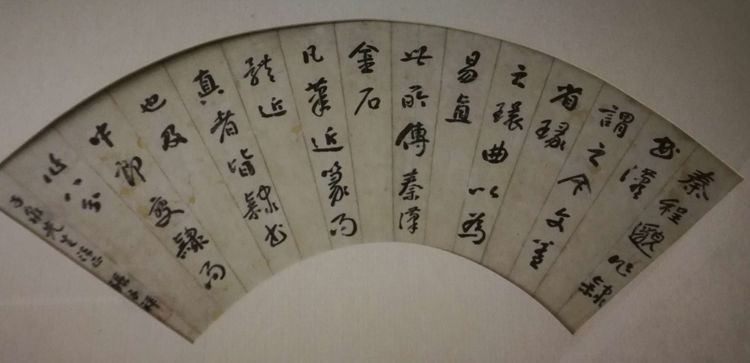 秦程邈作隸
書漢
謂之今文蓋
省篆
之環曲以為
易直
世所傳秦漢
金石
凡筆近篆而
體近
真者皆隸書
也及
中郎變隸而
作八分
先生